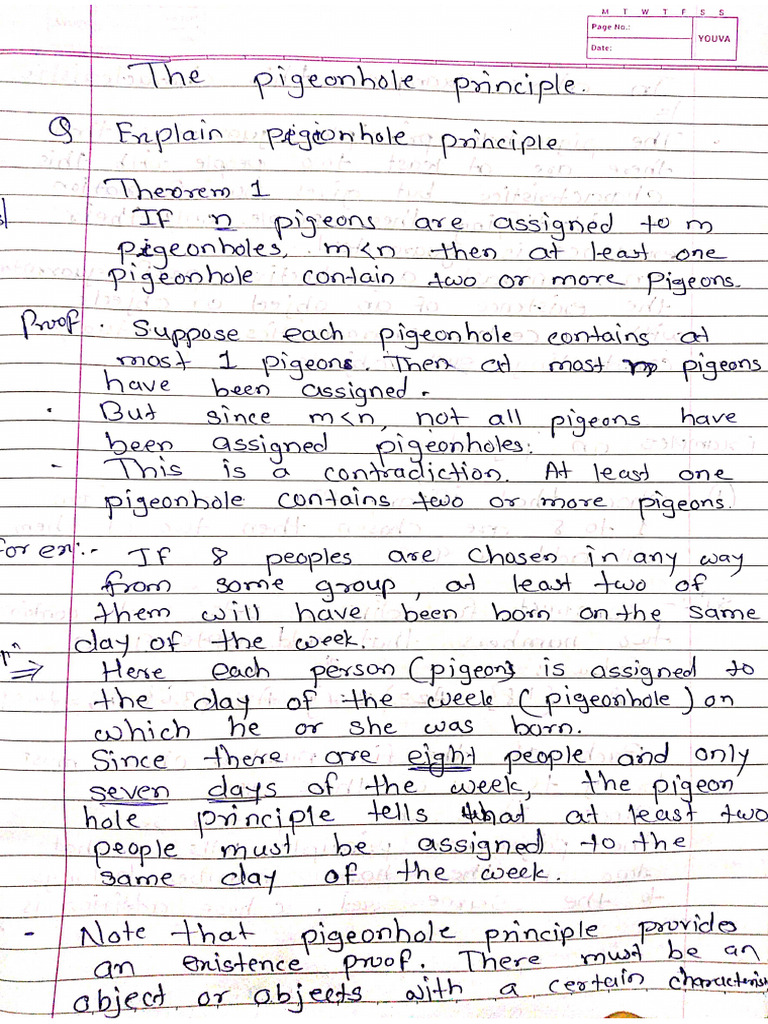 M T W T F S S
Page No.:
YOUVA
Date:
The pigeonhole principle.
Q Explain pigeionhole principle
Theorem 1
If n pigeons are assigned to m
pigeonholes, m<n then at least one
pigeonhole contain two or more Pigeons.
Proof . Suppose each pigeonhole contains at
most 1 pigeons. Then at most m pigeons
have been assigned.
. But since m<n, not all pigeons have
been assigned pigeonholes.
- This is a contradiction. At least one
pigeonhole contains two or more pigeons.
For ex:- If 8 peoples are chosen in any way
from some group, at least two of
them will have been born on the same
day of the week.
⇒ Here each person (pigeon) is assigned to
the day of the week (pigeonhole) on
which he or she was born.
Since there are eight people and only
seven days of the week, the pigeon
hole principle tells that at least two
people must be assigned to the
same day of the week.
- Note that pigeonhole principle provides
an existence proof. There must be an
object or objects with a certain characteris